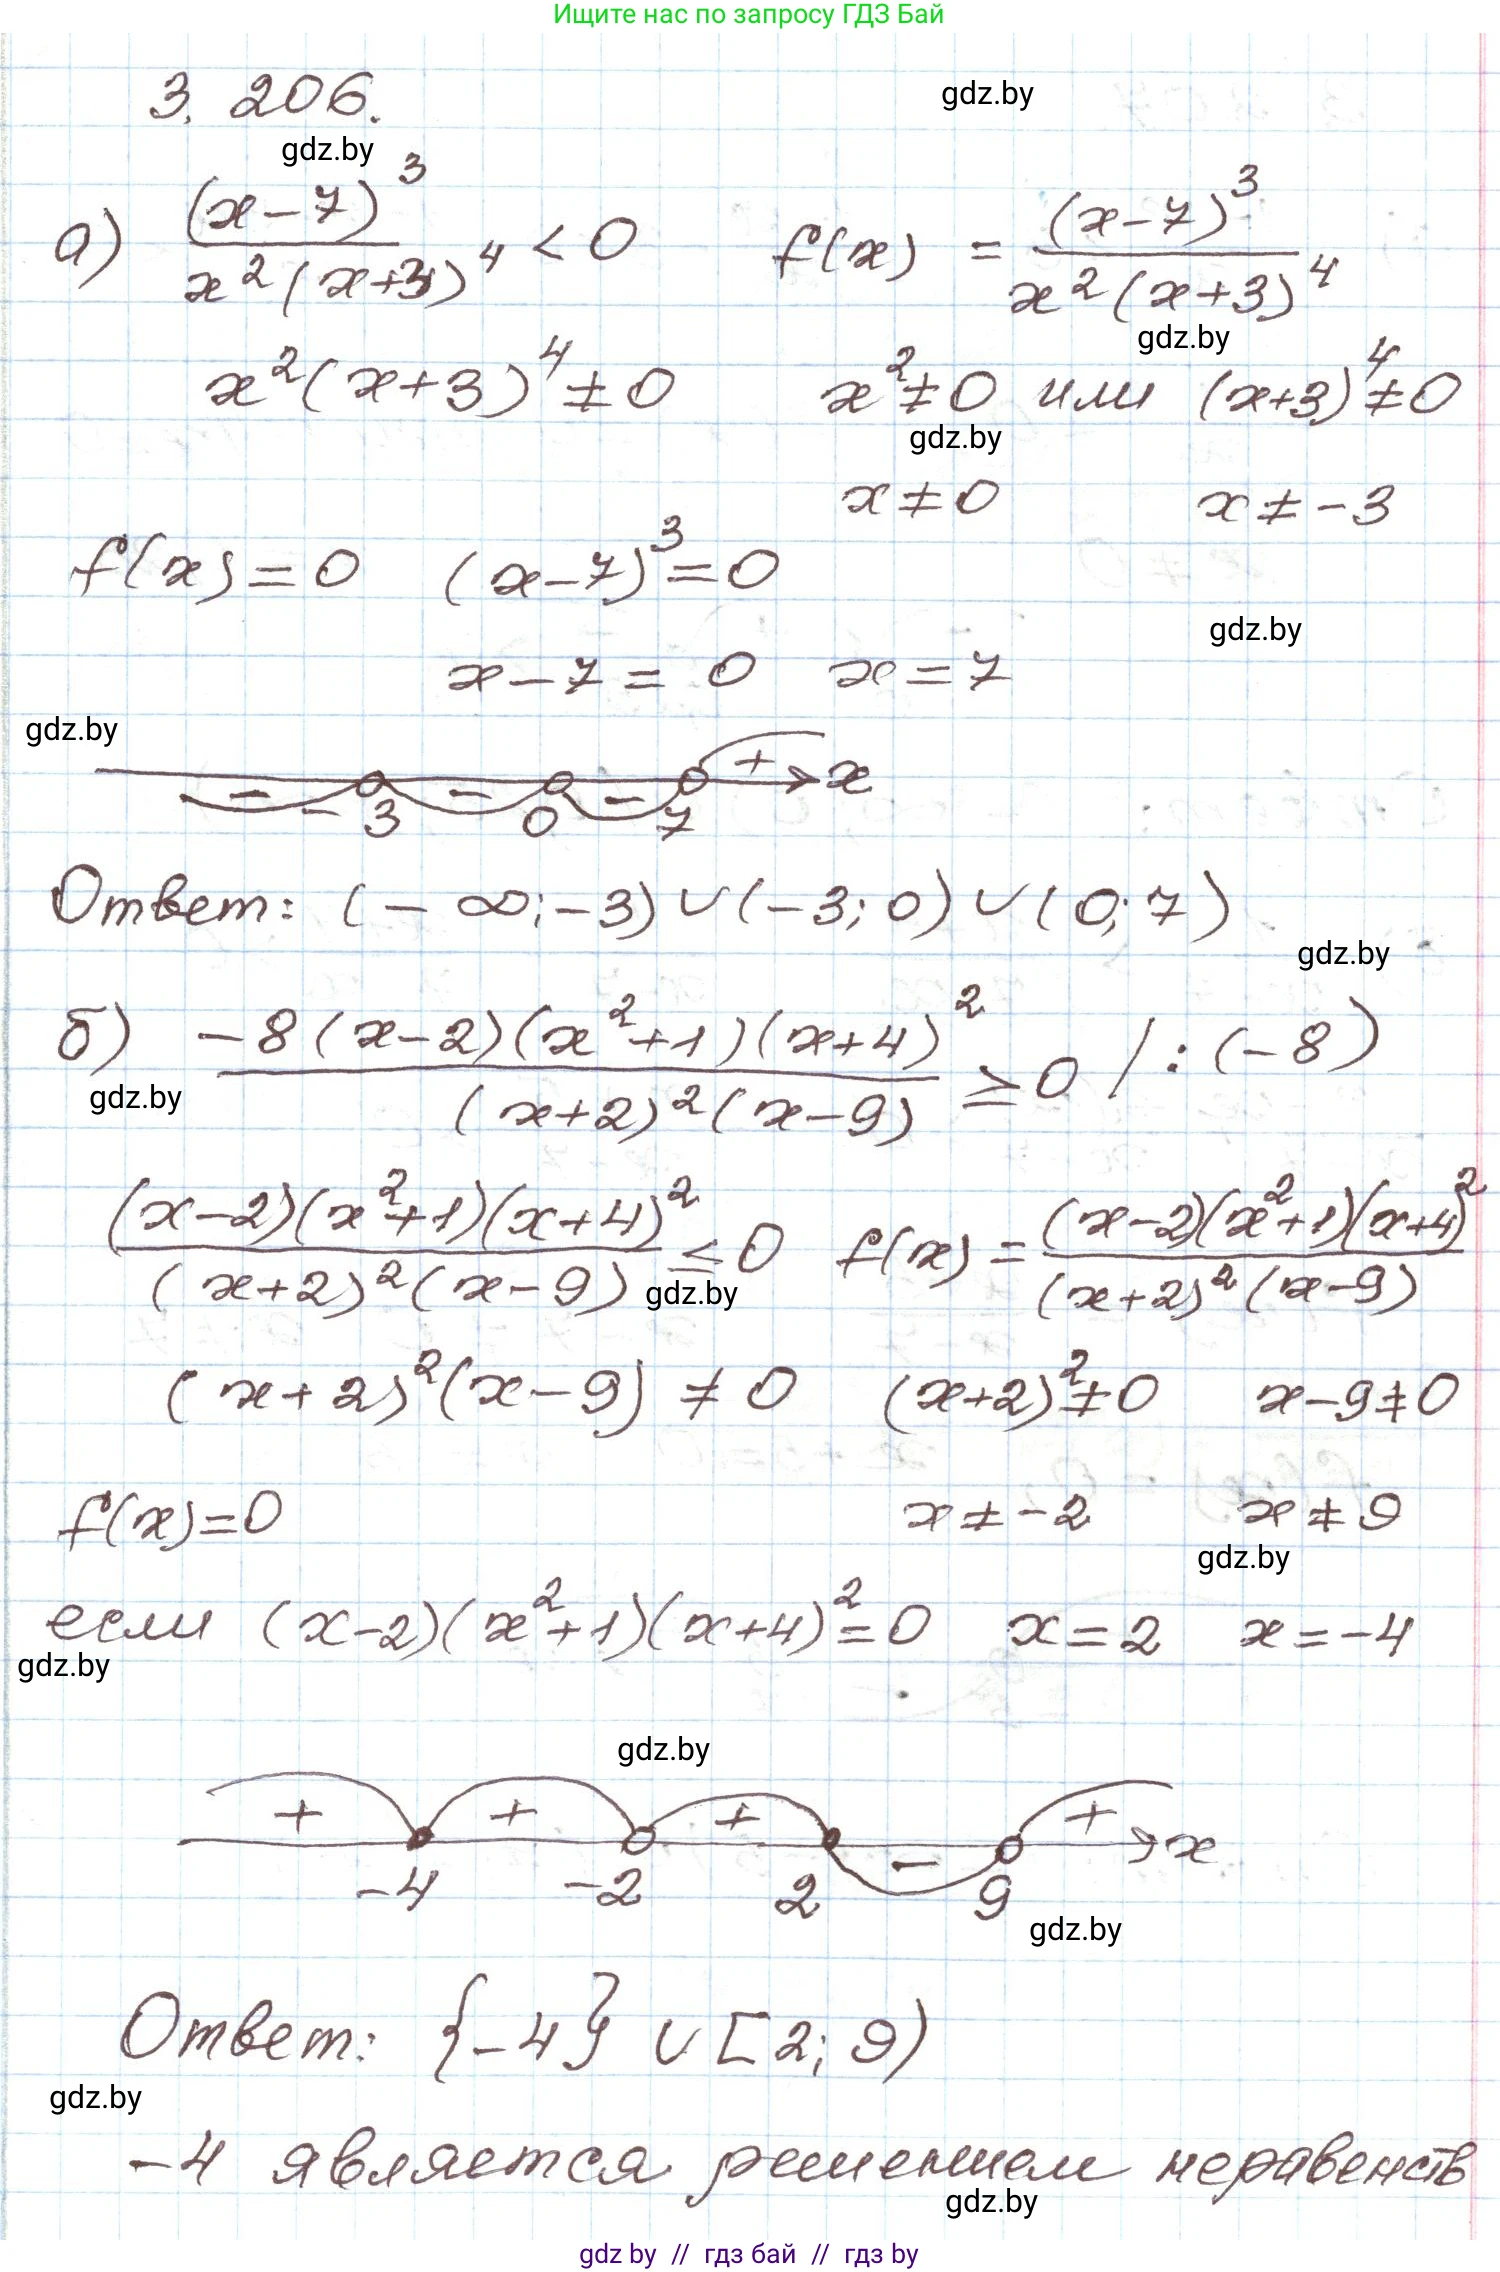 Ищите нас по запросу ГДЗ Бай
3. 206.
gdz.by
gdz.by
а) (x-7)³ / x²(x+3)⁴ < 0    f(x) = (x-7)³ / x²(x+3)⁴
gdz.by
x²(x+3)⁴ ≠ 0    x² ≠ 0 или (x+3)⁴ ≠ 0
gdz.by
x ≠ 0    x ≠ -3
f(x) = 0    (x-7)³ = 0
gdz.by
x - 7 = 0    x = 7
gdz.by
- - - + x
-3 0 7
Ответ: (-∞; -3) ∪ (-3; 0) ∪ (0; 7)
gdz.by
б) -8(x-2)(x²+1)(x+4)² / (x+2)²(x-9) ≥ 0 / : (-8)
gdz.by
(x-2)(x²+1)(x+4)² / (x+2)²(x-9) ≤ 0    f(x) = (x-2)(x²+1)(x+4)² / (x+2)²(x-9)
gdz.by
(x+2)²(x-9) ≠ 0    (x+2)² ≠ 0    x-9 ≠ 0
f(x) = 0    x ≠ -2    x ≠ 9
gdz.by
если (x-2)(x²+1)(x+4)² = 0    x = 2    x = -4
gdz.by
gdz.by
+ + + - + x
-4 -2 2 9
gdz.by
Ответ: {-4} ∪ [2; 9)
gdz.by
-4 является решением неравенств
gdz.by
gdz by // гдз бай // гдз by